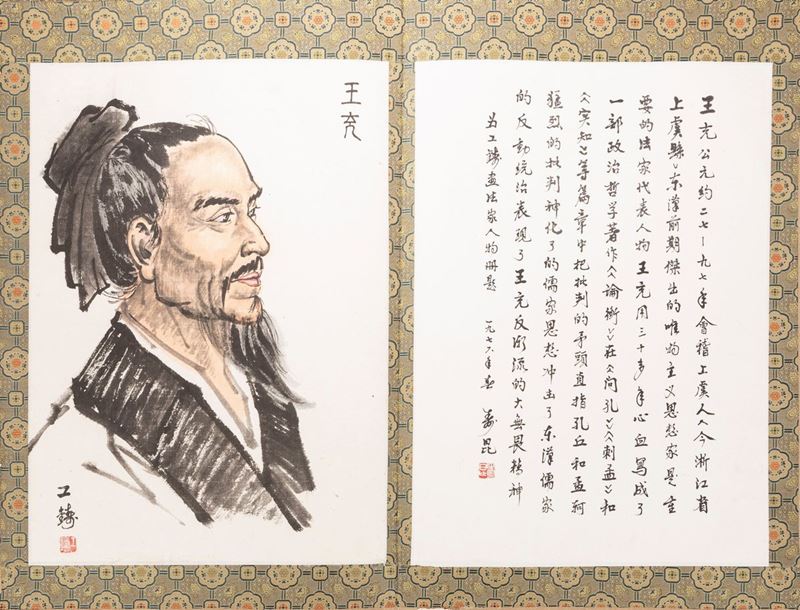 王充
工鑄
王充公元約二七—九七年會稽上虞人〈今浙江省
上虞縣〉东漢前期傑出的唯物主义思想家是主
要的法家代表人物王充用三十多年心血寫成了
一部政治哲学著作《論衡》在《问孔》《刺孟》和
《实知》等篇章中把批判的矛頭直指孔丘和孟軻
猛烈的批判神化了的儒家思想冲出了东漢儒家
的反動統治表現了王充反潮流的大無畏精神
为工鑄画法家人物册题 一九七六年春 昆